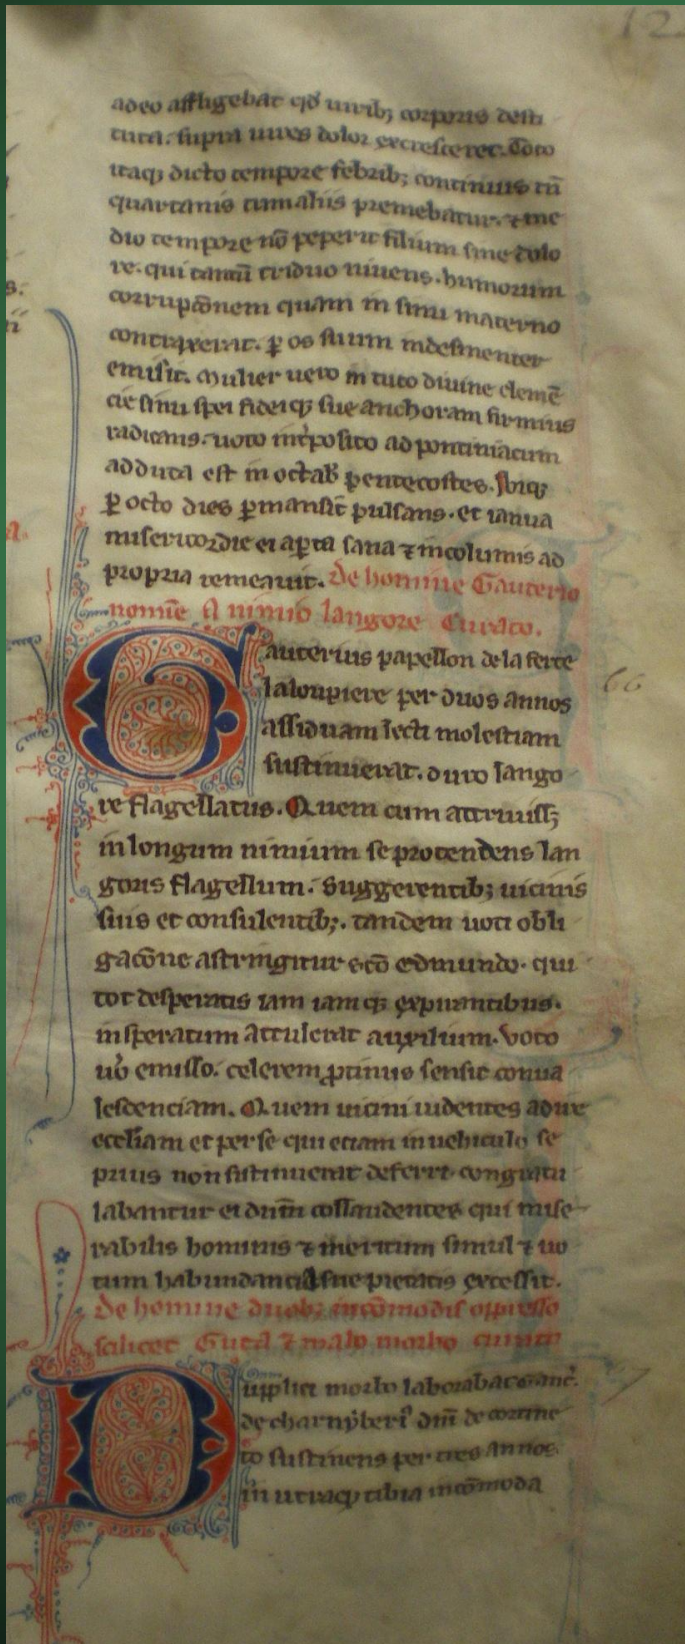 12
adeo affligebat qd̄ uirib; corporis desti
tuta. supra uires dolor excresceret. Toto
itaq; dicto tempore febrib; continuis tn̄
quartanis cum aliis premebatur. ⁊ me
dio tempore nō peperit filium sine dolo
re. qui tantū triduo uiuens. humorum
corrupc̄onem quam in sinu materno
contraxerat. ꝑ os suum indesinenter
emisit. Mulier uero in tuto diuine clemē
cie sinu spei fideiq; sue anchoram firmius
radicans. uoto int̄posito ad pontiniacum
adducta est in octab̄ pentecostes. Ibiq;
ꝑ octo dies ꝑmansit pulsans. et ianua
misericordie ei aꝑta sana ⁊ incolumis ad
propria remeauit. De homine Gauterio
nomine A nimio langore Curato.
Gauterius papellon de la ferte
laloupiere per duos annos
66
assiduam lecti molestiam
sustinuerat. duro lango
re flagellatus. Quem cum attriuiss;
in longum nimium se protendens lan
goris flagellum. Suggerentib; uicinis
suis et consulentib;. tandem uoti obli
gac̄one astringitur sc̄o edmundo. qui
tot desperatis iam iamq; expirantibus.
insperatum attulerat auxilium. Voto
u̾o emisso. celerem ꝓtinus sensit conua
lescenciam. Quem uicini uidentes ad ux
eccl̄iam et per se qui etiam in uehiculo se
prius non sustinuerat deferri. congratu
labantur ei dn̄m collaudentes qui mise
rabilis hominis ⁊ meritum simul ⁊ uo
tum habundantia sue pietatis excessit.
De homine duob; incōmodis oppresso
scilicet Guta ⁊ malo morbo curato
Duplici morbo laborabat
de charny
to sustinens per tres annos.
in utraq; tibia incōmoda